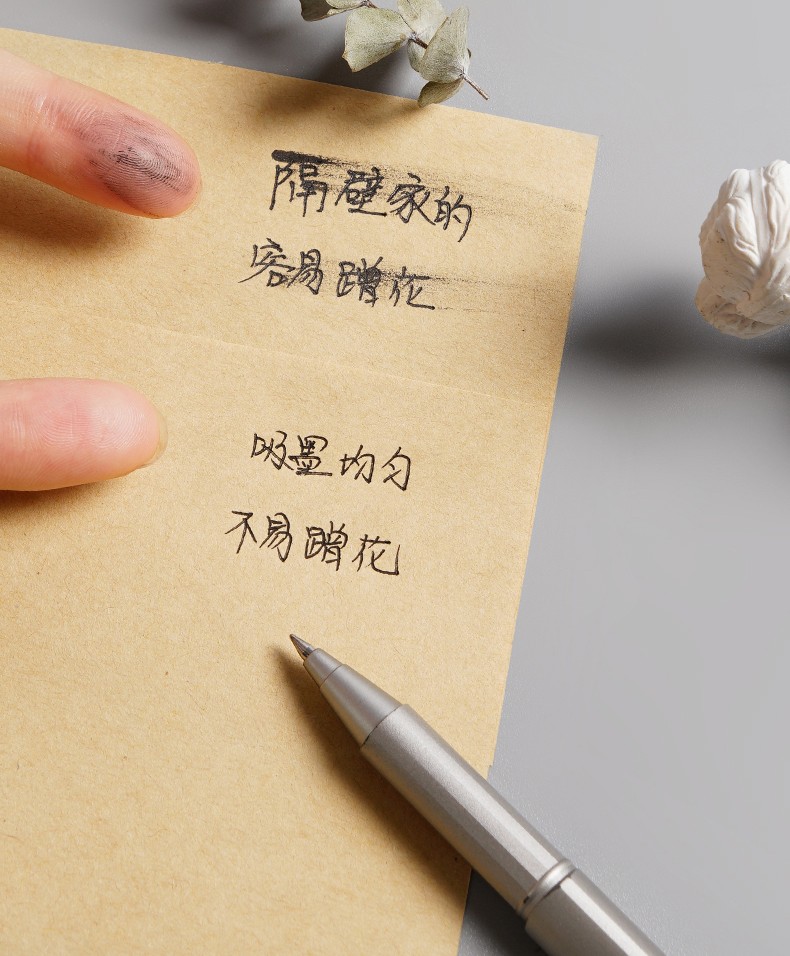 隔壁家的
容易蹭花
吸墨均匀
不易蹭花